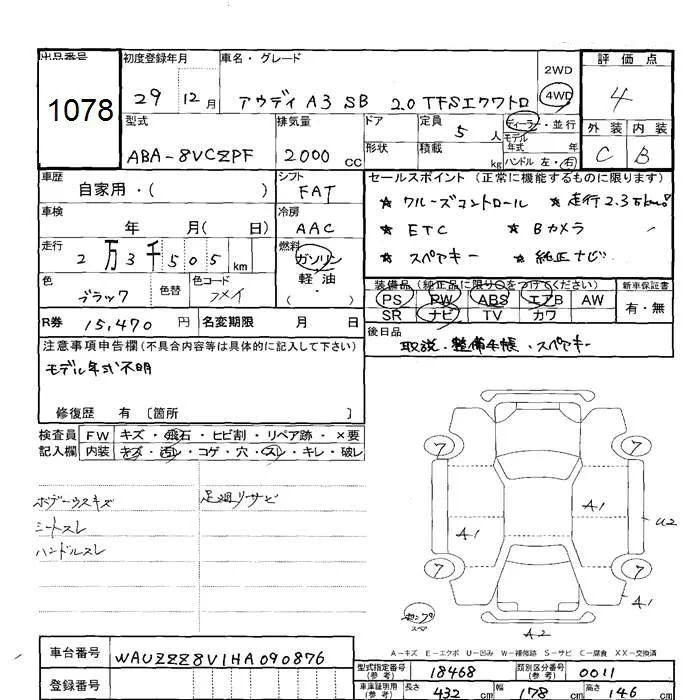 出品番号
1078
初度登録年月
29 12月
車名・グレード
アウディ A3 SB 2.0 TFSIクワトロ
2WD
4WD
評価点
4
外装 内装
C B
型式
ABA-8VCZPF
排気量
2000 cc
ドア
形状
定員
5人
積載
kg
ディーラー・並行
モデル
年式 年
ハンドル 左・右
車歴
自家用・( )
シフト
FAT
車検
年 月( 日)
冷房
AAC
走行
2万3千505 km
燃料
ガソリン
軽油
( )
色
ブラック
色替
色コード
R券 15,470 円
名変期限 月 日
セールスポイント (正常に機能するものに限ります)
★ クルーズコントロール ★ 走行2.3万km!
★ ETC ★ Bカメラ
★ スペアキー ★ 純正ナビ
装備品(純正品に限り○をつけてください)
PS PW ABS エアB AW
SR ナビ TV カワ
新車保証書
有・無
後日品
取説・整備手帳・スペアキー
注意事項申告欄(不具合内容等は具体的に記入して下さい)
モデル年式不明
修復歴 有 〔箇所 〕
検査員 FW キズ・飛石・ヒビ割・リペア跡・×要
記入欄 内装 キズ・汚レ・コゲ・穴・スレ・キレ・破レ
ボデーウスキズ
足廻リサビ
シートスレ
ハンドルスレ
7 7
A1
A1
U2
7 7
A1
スペア
A2
A-キズ E-エクボ U-凹み W-補修跡 S-サビ C-腐食 XX-交換済
車台番号 WAUZZZ8V1HA090876
登録番号
型式指定番号(参考) 18468
類別区分番号(参考) 0011
車庫証明用(参考) 長さ 432 cm 幅 178 cm 高さ 146 cm